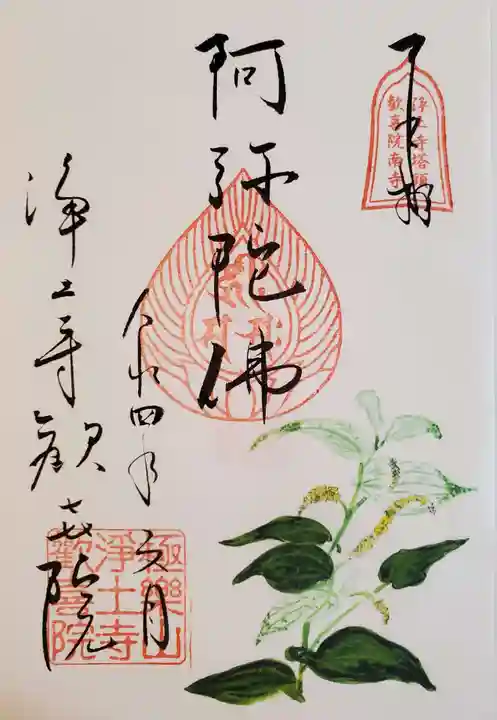 浄土寺塔頭
歓喜院南寺
阿弥陀佛
令和四年
六月
浄土寺歓喜院
極樂山
淨土寺
歡喜院